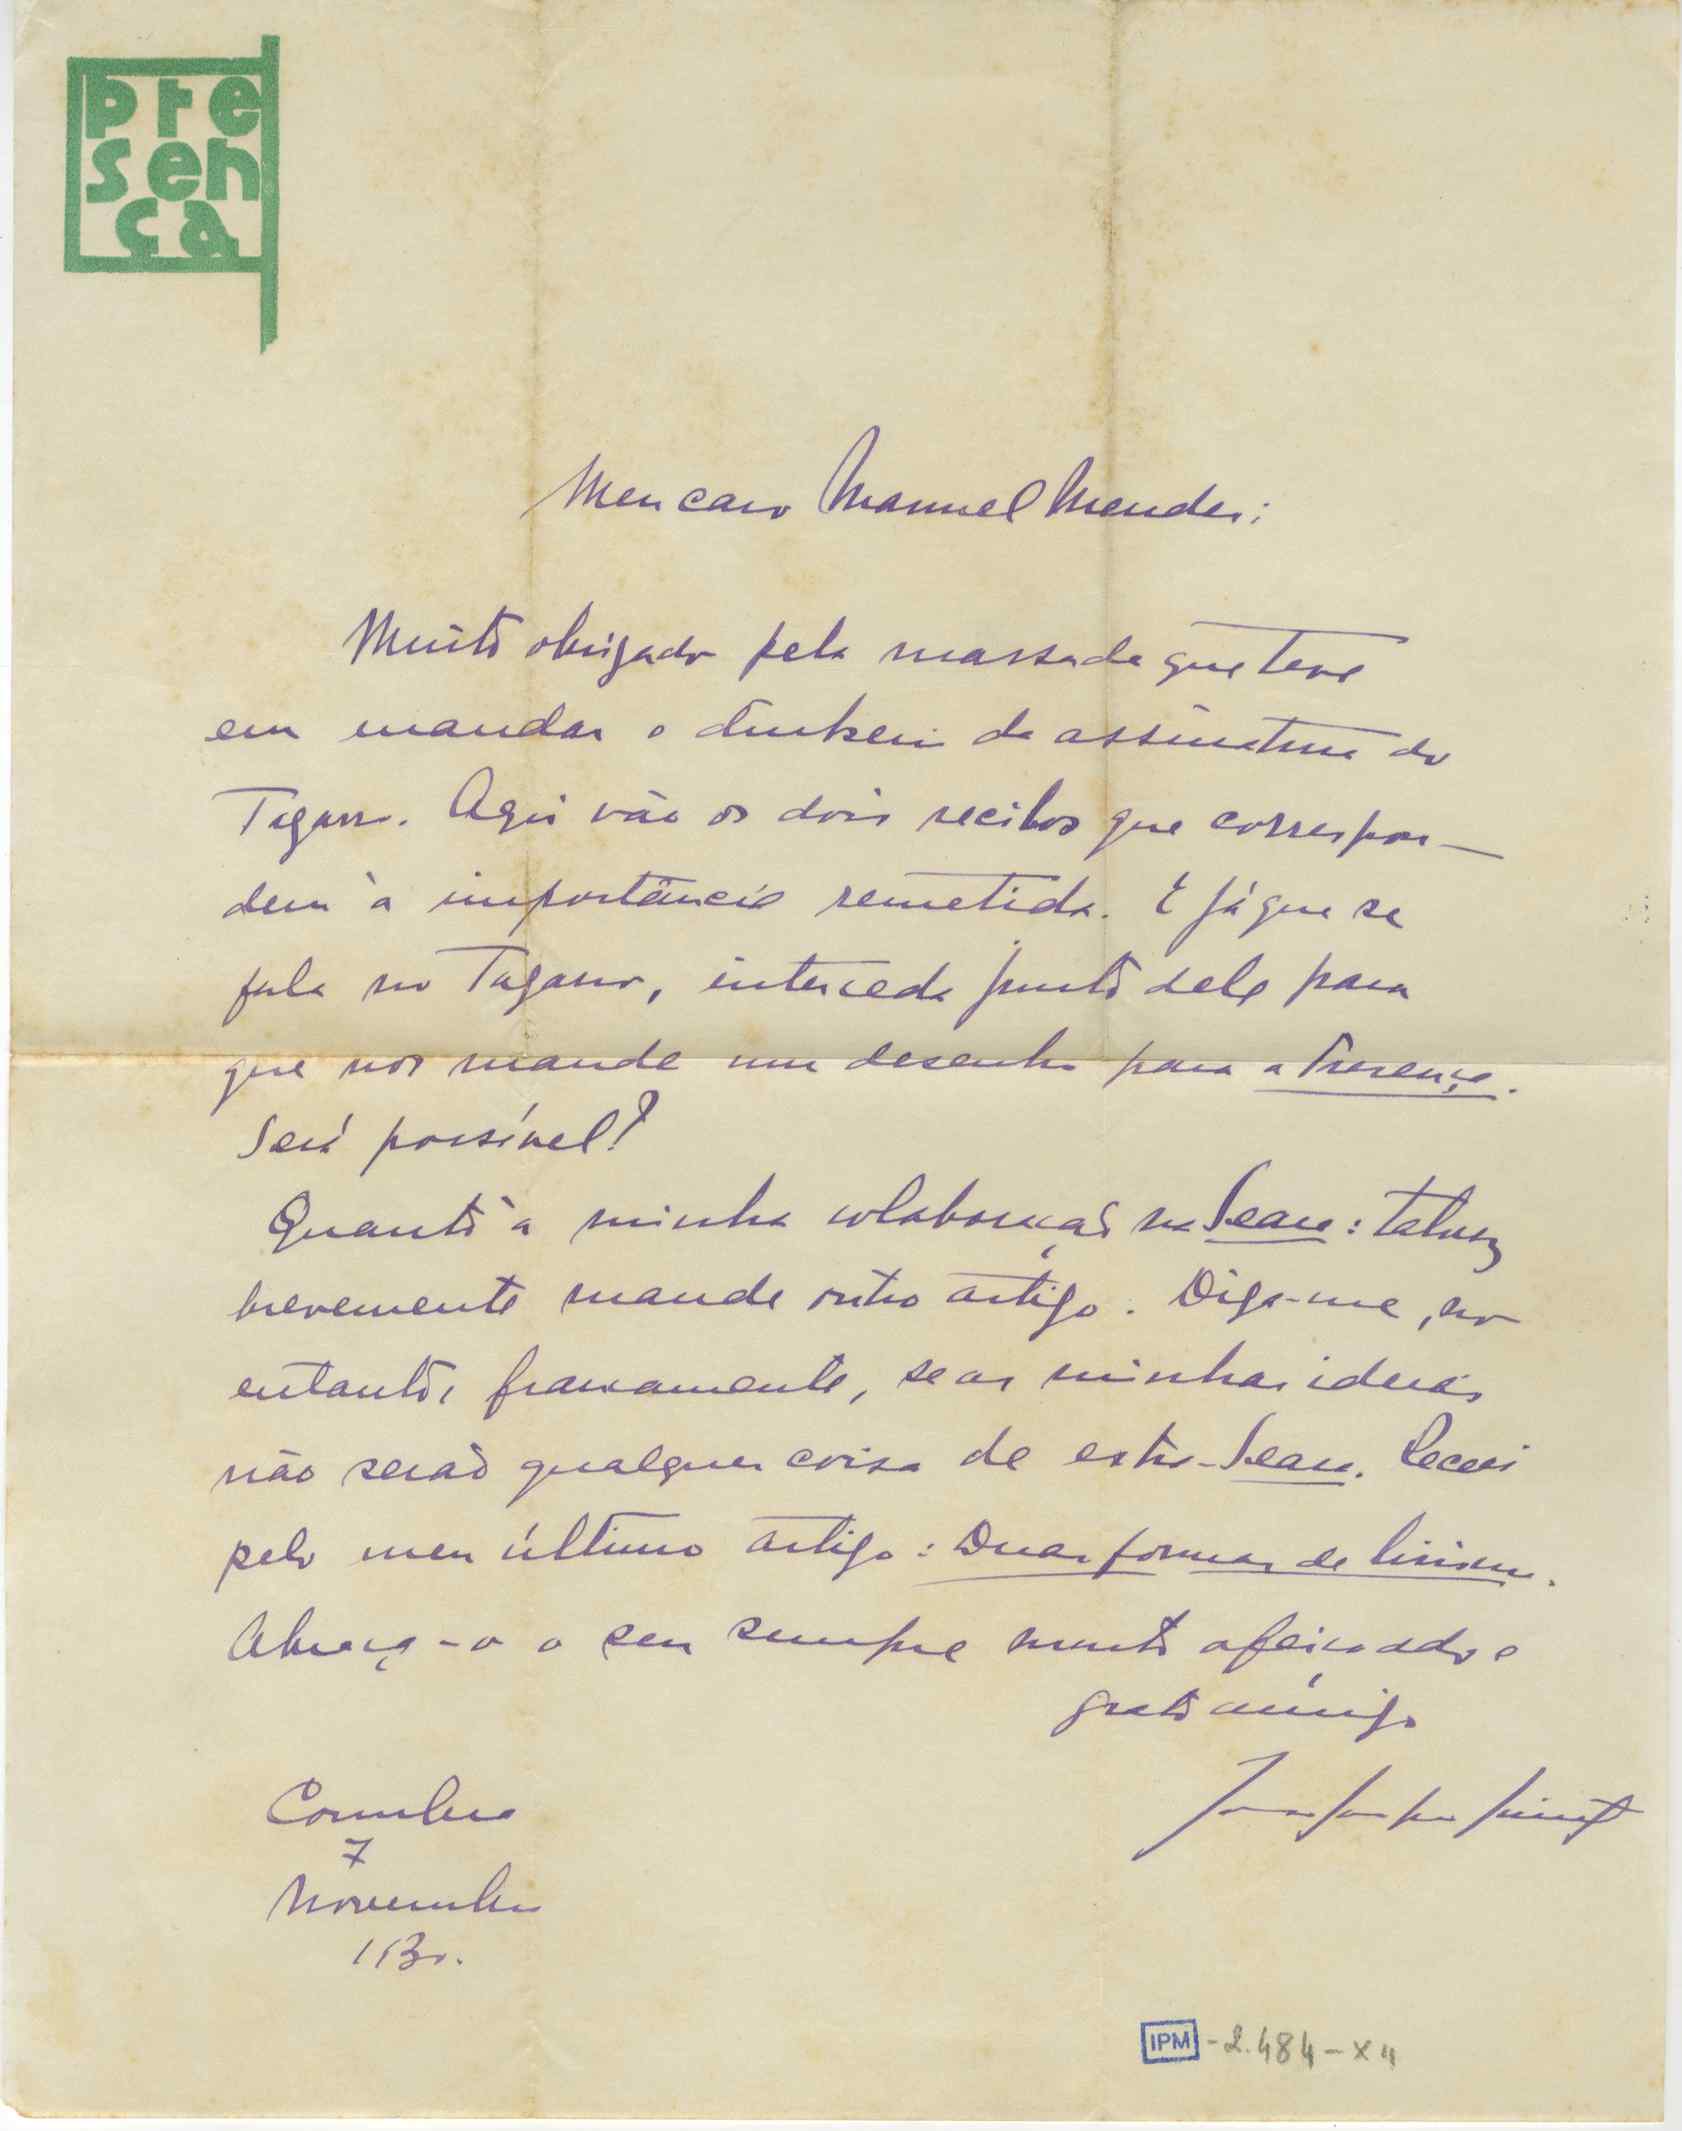 pre
sen
ça
Meu caro Manuel Mendes:
Muito obrigado pela massada que teve
em mandar o dinheiro da assinatura do
Tagarro. Aqui vão os dois recibos que correspon-
dem à importância remetida. E já que se
fala no Tagarro, interceda junto dele para
que nos mande um desenho para a Presença.
Será possível?
Quanto à minha colaboração na Seara: talvez
brevemente mande outro artigo. Diga-me, no
entanto, francamente, se as minhas ideias
não serão qualquer coisa de extra-Seara. Receei
pelo meu último artigo: Duas formas de lirismo.
Abraça-o o seu sempre muito afeiçoado e
grato amigo
João Gaspar Simões
Coimbra
7
Novembro
930.
IPM -2.484-X4